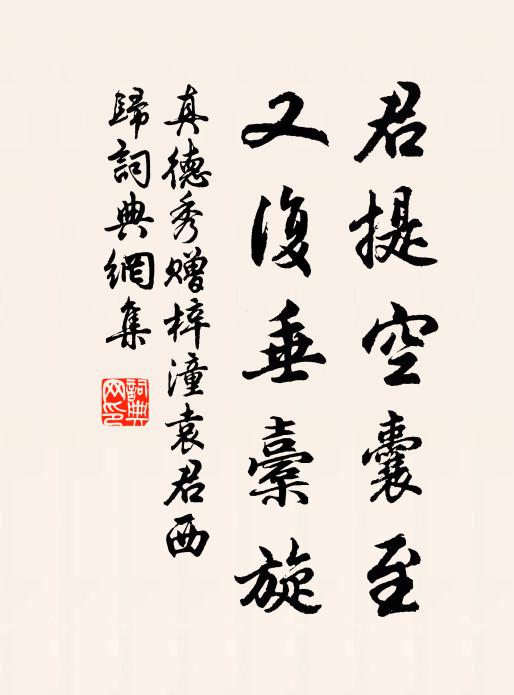 君提空囊至
又復垂橐旋
真德秀赠梓潼袁君西
歸詞典網集
詞典
网印